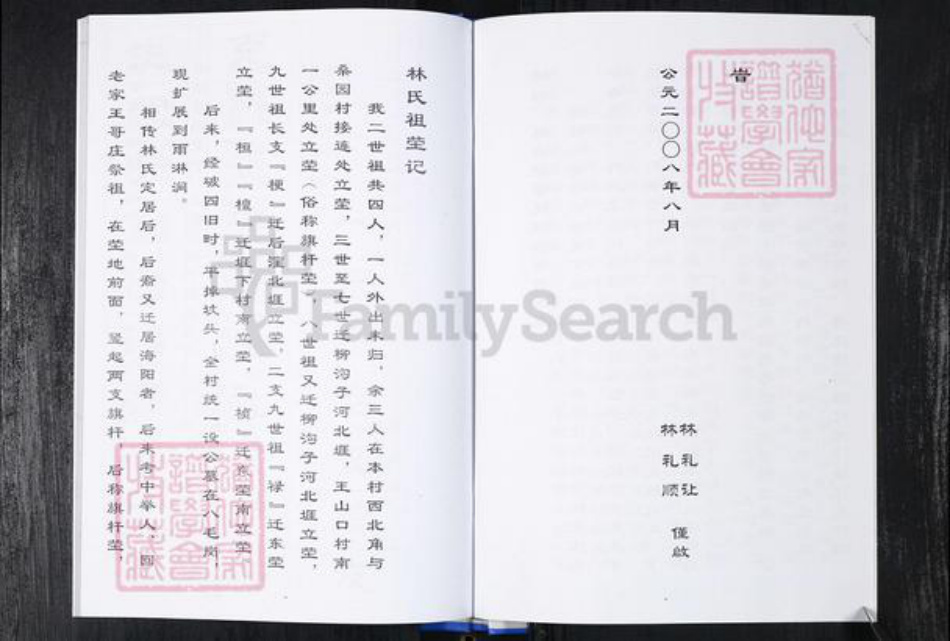 旹
公元二〇〇八年八月
林礼让
林礼顺
僅啟
猶他家
譜學會
收藏
林氏祖茔记
我二世祖共四人，一人外出未归，余三人在本村西北角与
桑园村接连处立茔，三世至七世迁柳沟子河北堐，王山口村南
一公里处立茔（俗称旗杆茔），八世祖又迁柳沟子河北堐立茔，
九世祖长支『梗』迁后洼北堐立茔，二支九世祖『禄』迁东茔
立茔，『桓』『檀』迁堐下村南立茔，『祯』迁东茔南立茔，
后来，经破四旧时，平掉坟头，全村统一设公墓在八毛岗，
现扩展到雨淋涧。
相传林氏定居后，后裔又迁居海阳者，后来考中举人，回
老家王哥庄祭祖，在茔地前面，竖起两支旗杆，后称旗杆茔，
猶他家
譜學會
收藏
FamilySearch